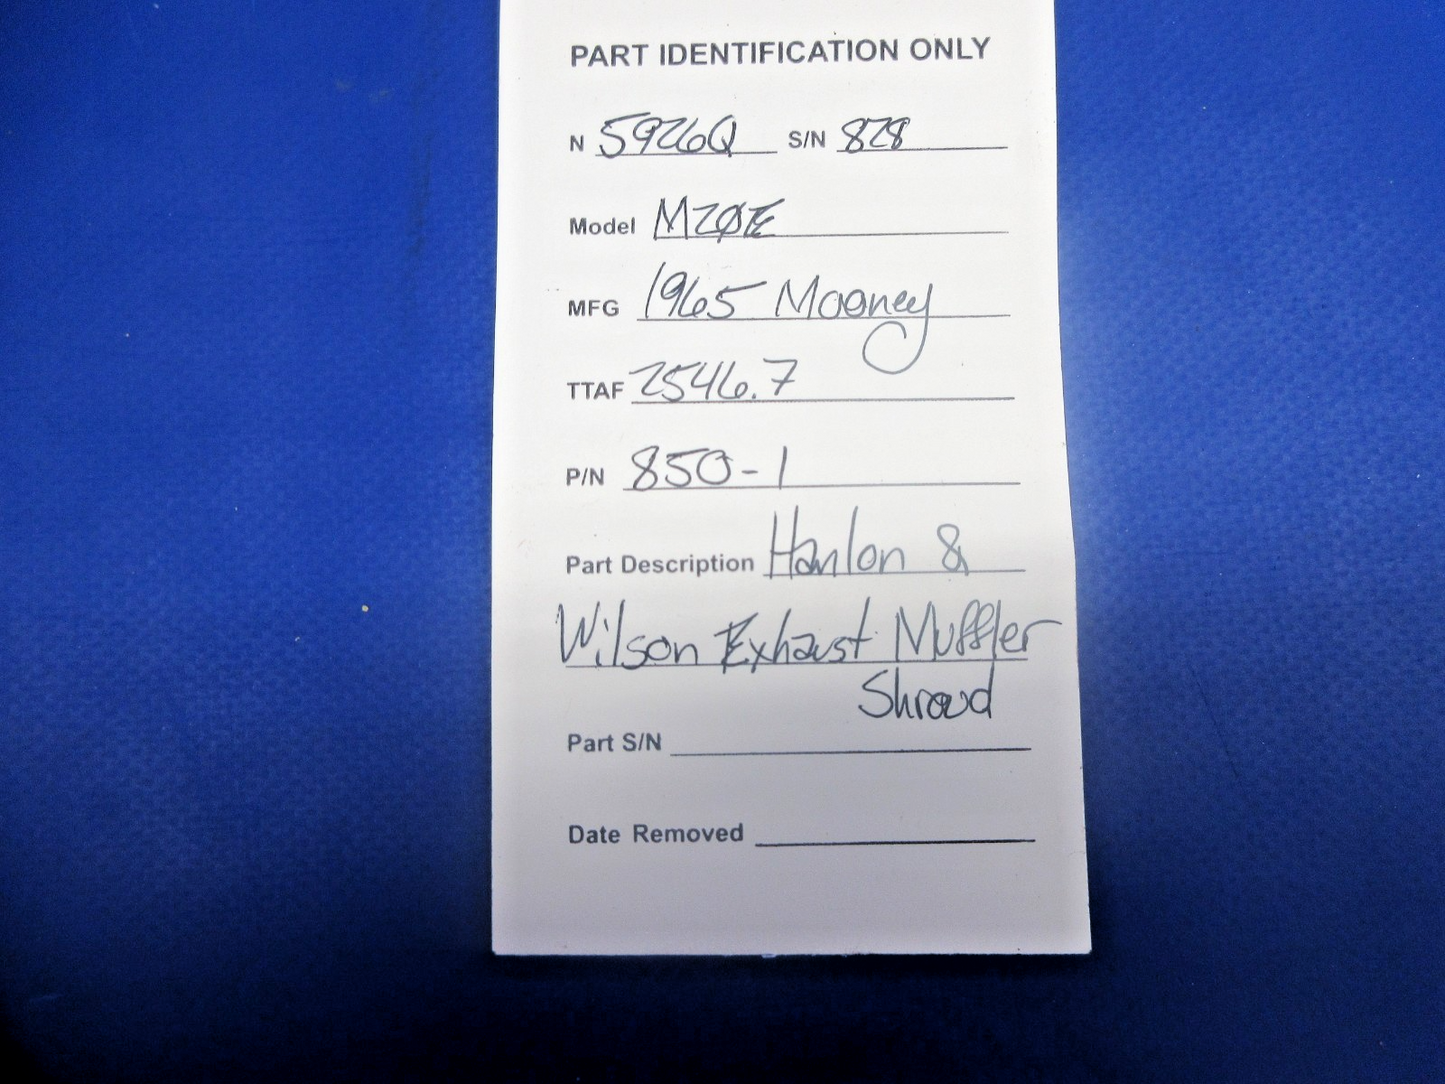 PART IDENTIFICATION ONLY
N 5926Q S/N 828
Model M20E
MFG 1965 Mooney
TTAF 2546.7
P/N 850-1
Part Description Hanlon &
Wilson Exhaust Muffler
Shroud
Part S/N
Date Removed